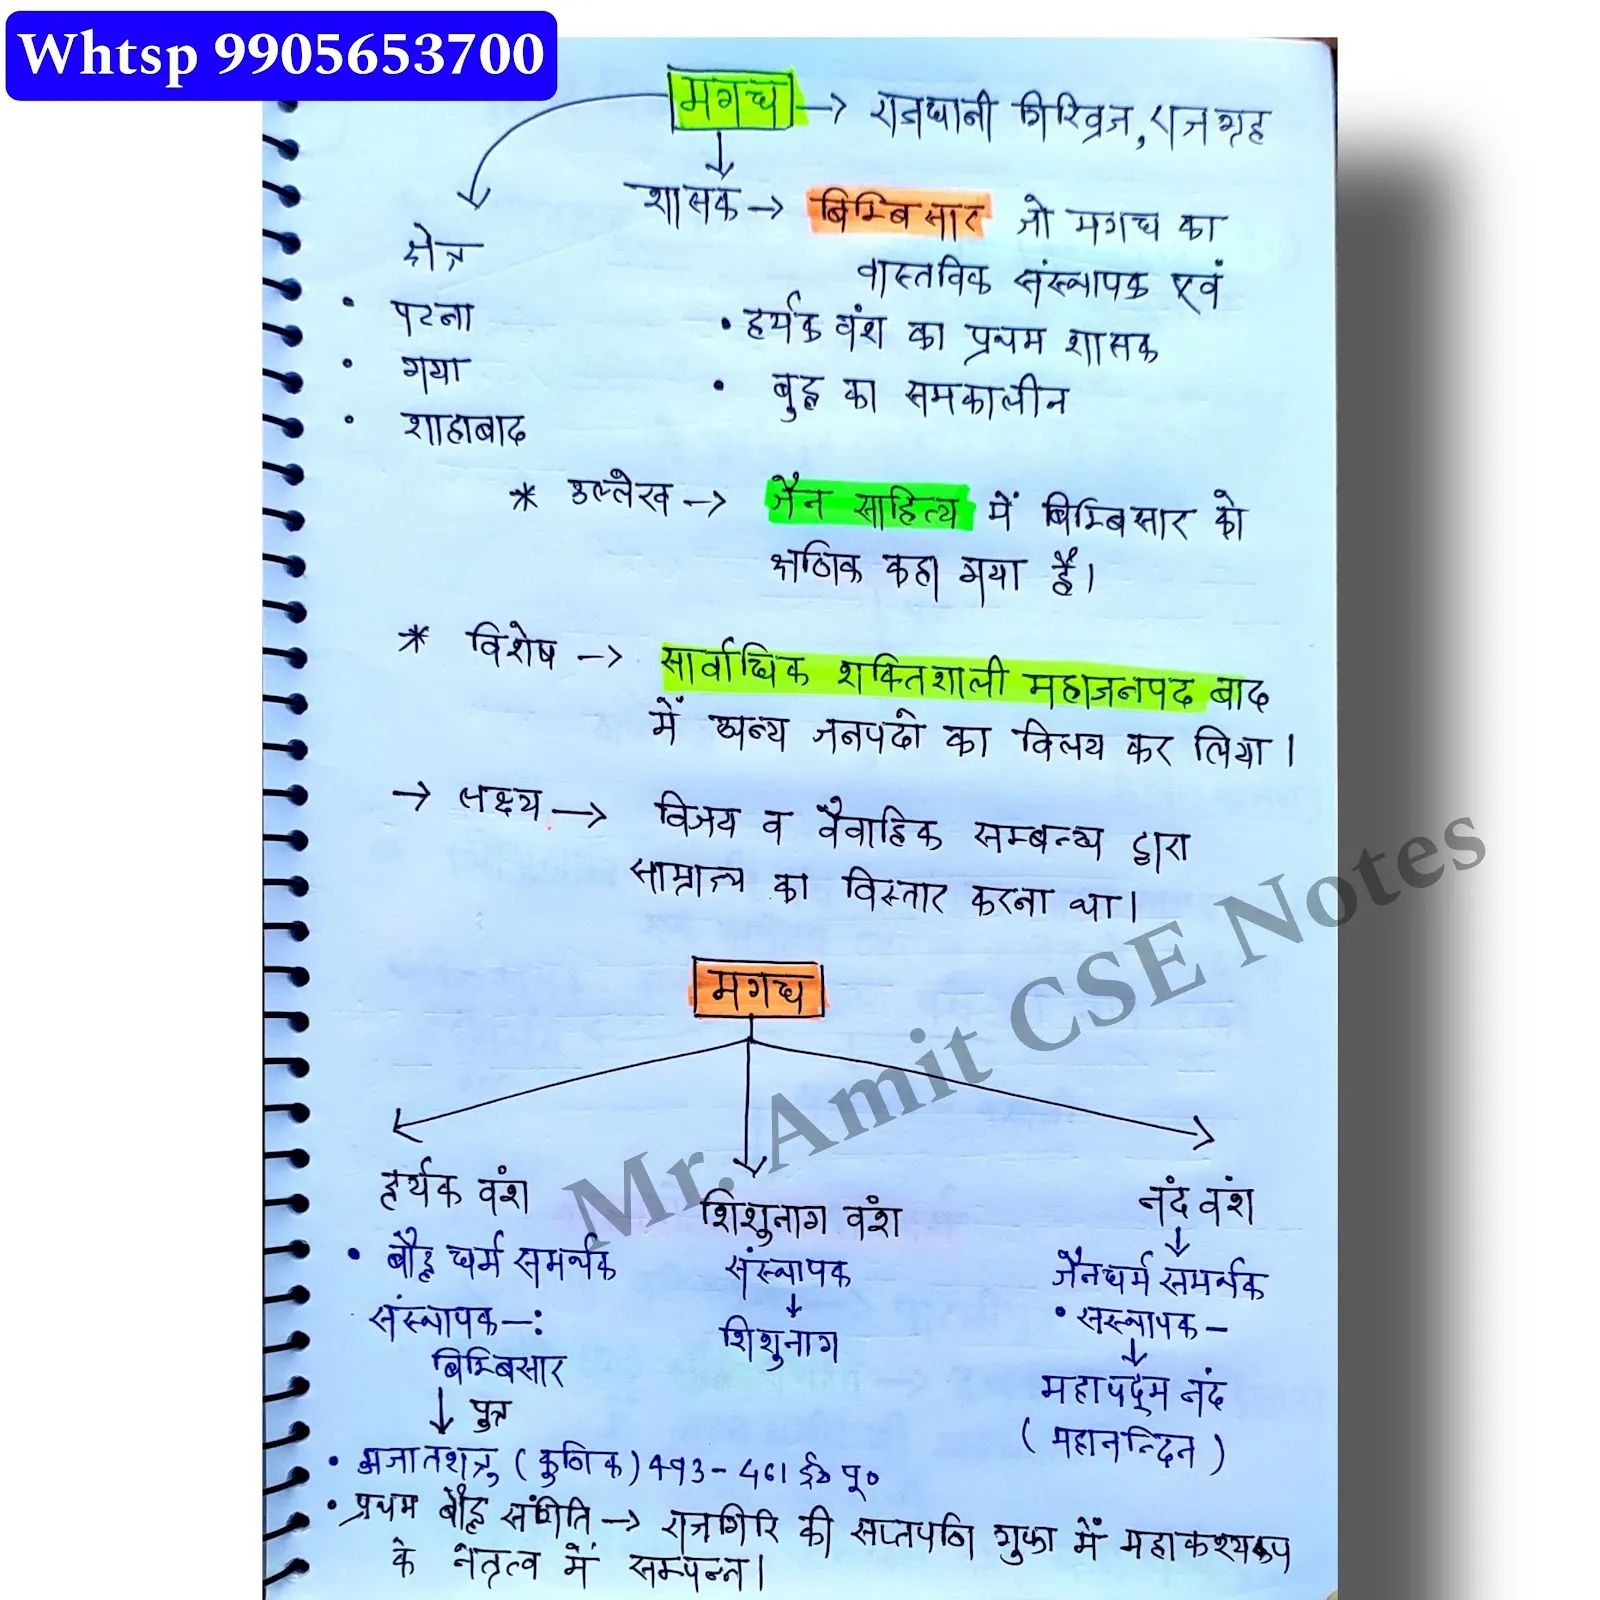 Whtsp 9905653700
मगध → राजधानी गिरिव्रज, राजगृह
शासक → बिम्बिसार जो मगध का
वास्तविक संस्थापक एवं
क्षेत्र
• पटना
• गया
• शाहाबाद
• हर्यक वंश का प्रथम शासक
• बुद्ध का समकालीन
* उल्लेख → जैन साहित्य में बिम्बिसार को
क्षणिक कहा गया है।
* विशेष → सार्वाधिक शक्तिशाली महाजनपद बाद
में अन्य जनपदों का विलय कर लिया।
→ लक्ष्य → विजय व वैवाहिक सम्बन्ध द्वारा
साम्राज्य का विस्तार करना था।
Mr. Amit CSE Notes
मगध
हर्यक वंश
• बौद्ध धर्म समर्थक
संस्थापक -:
बिम्बिसार
↓ पुत्र
• अजातशत्रु (कुणिक) 493 - 461 ई० पू०
शिशुनाग वंश
संस्थापक
↓
शिशुनाग
नंद वंश
↓
जैनधर्म समर्थक
• संस्थापक -
↓
महापद्म नंद
(महानन्दिन)
• प्रथम बौद्ध संगीति → राजगिरि की सप्तपर्णि गुफा में महाकश्यप
के नेतृत्व में सम्पन्न।